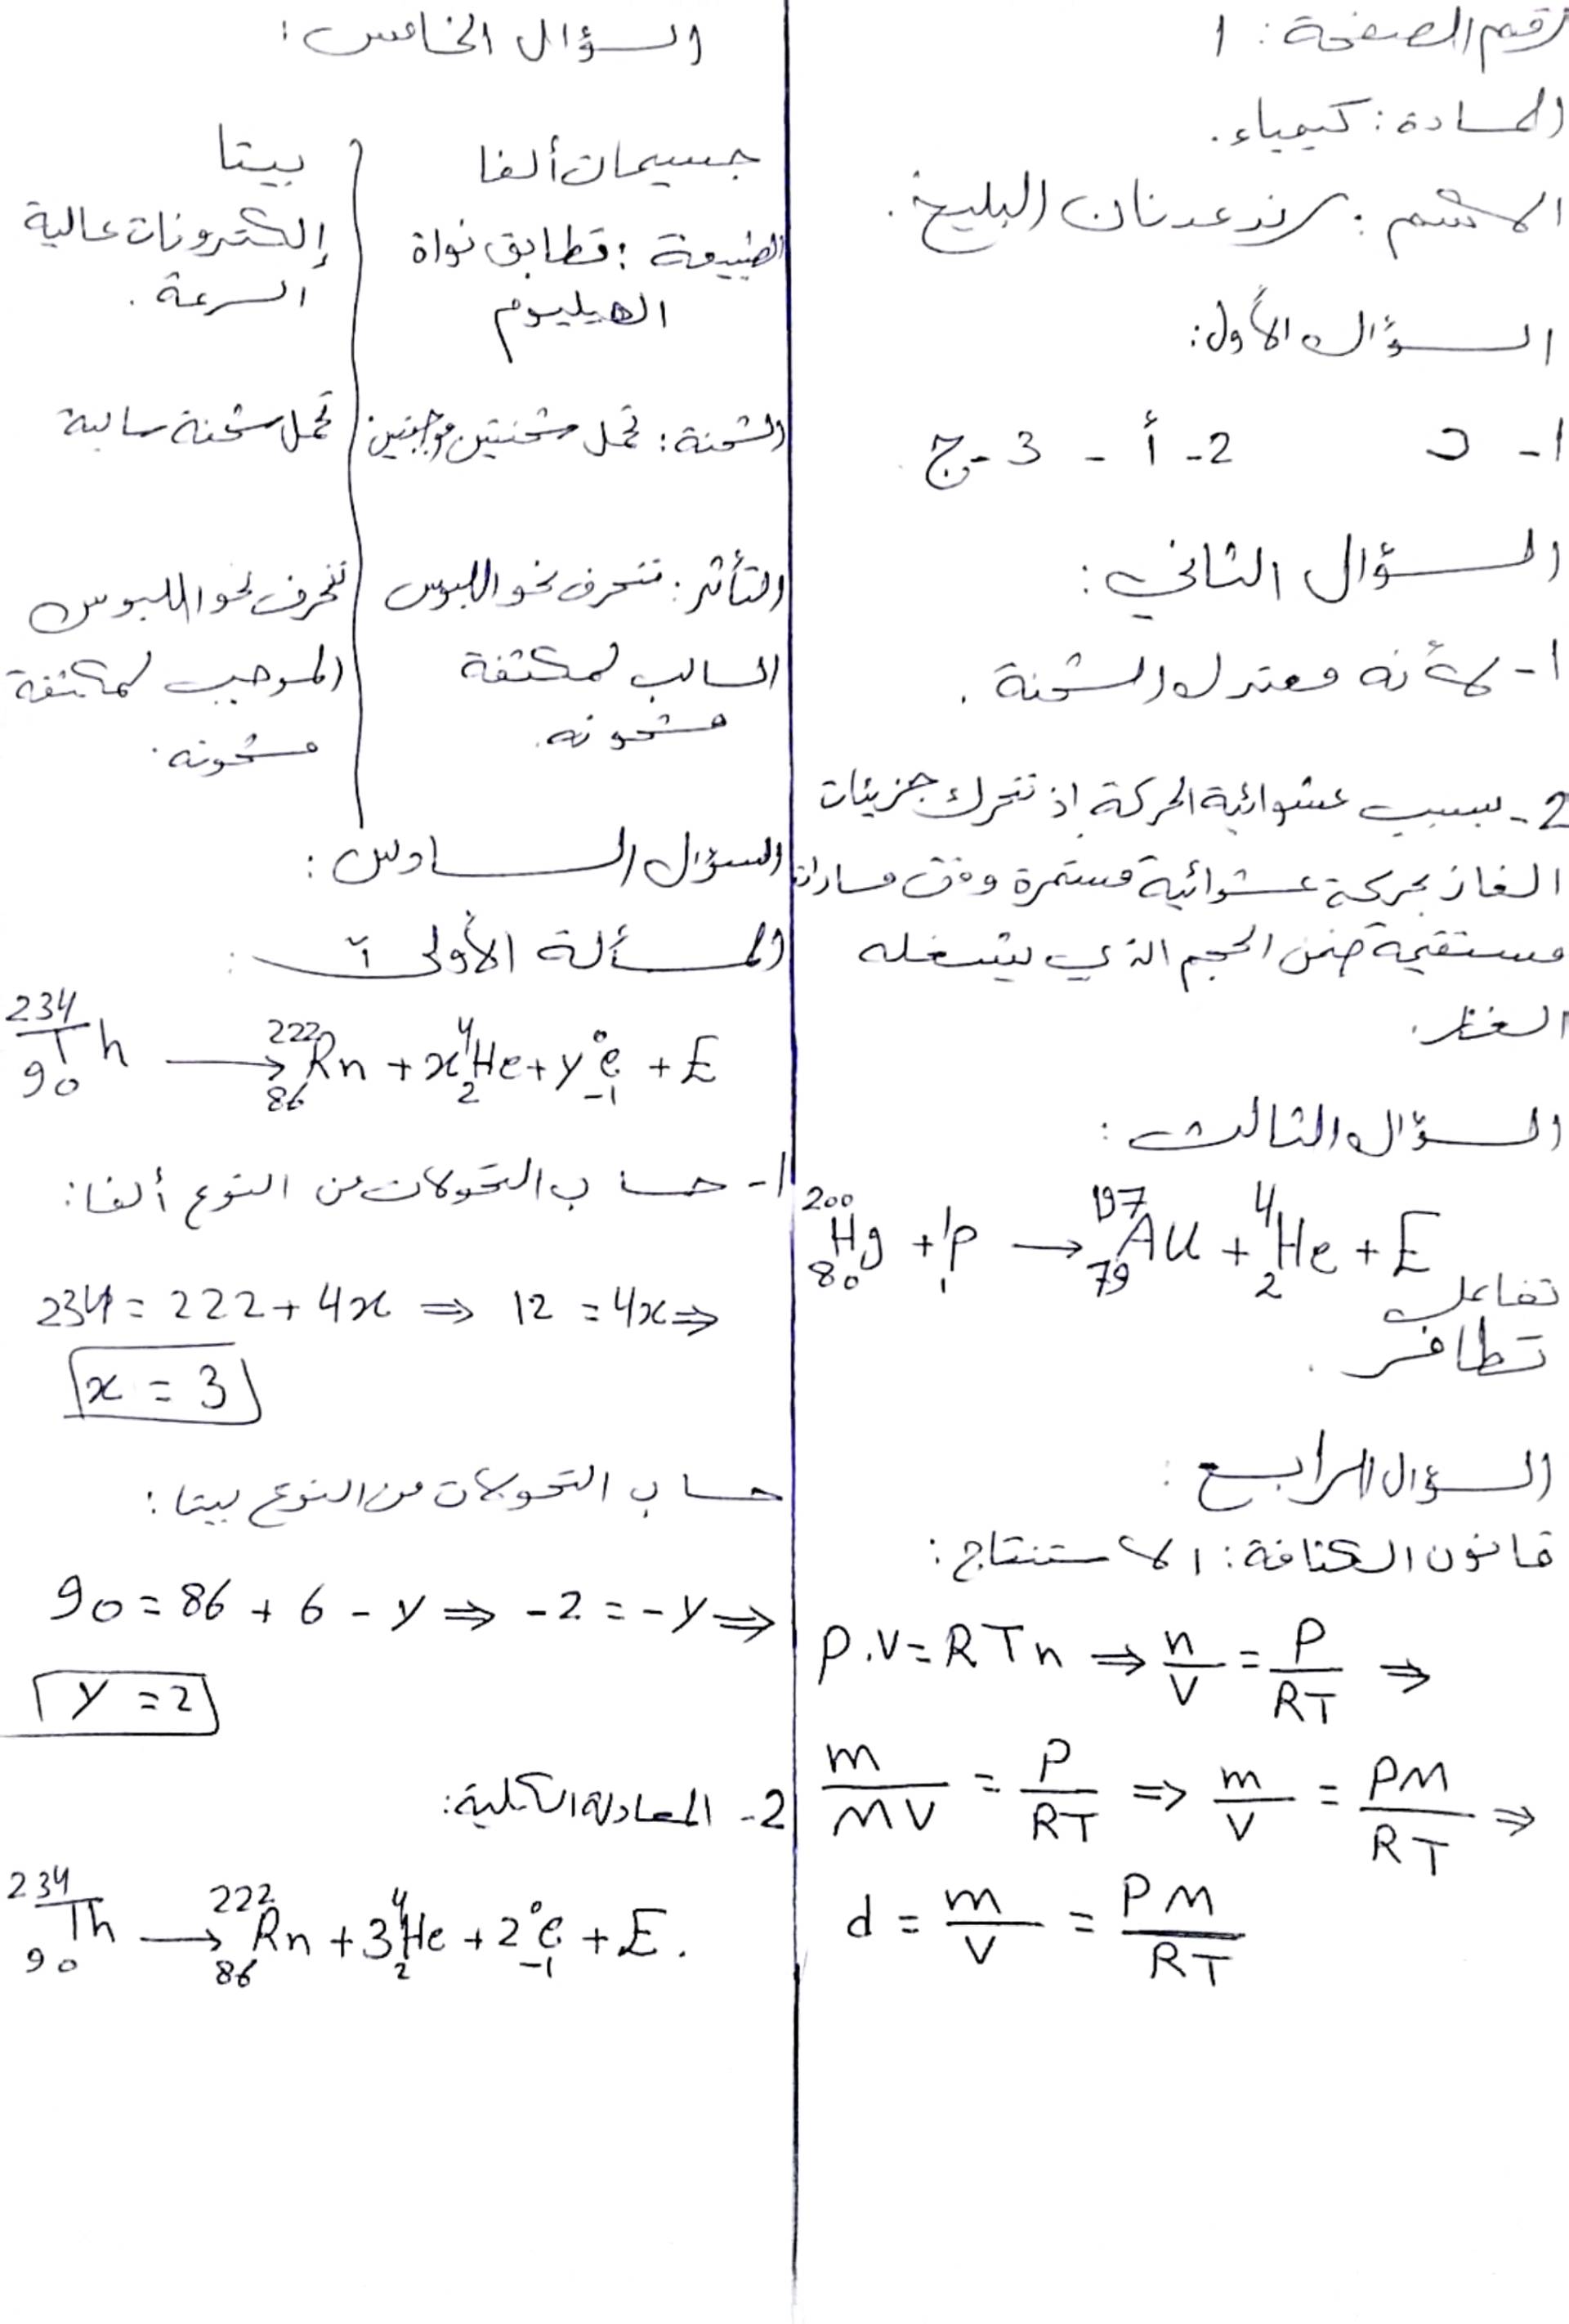 رقم الصفحة: 1
المادة: كيمياء.
الاسم: رند عدنان البليخ.
السؤال الأول:
1- د 2- أ - 3- ج.
السؤال الثاني:
1- لأنه معتدل الشحنة.
2- بسبب عشوائية الحركة إذ تتحرك جزيئات
الغاز بحركة عشوائية مستمرة وفق مسارات
مستقيمة ضمن الحجم الذي يشغله
الغاز.
السؤال الثالث:
²⁰⁰₈₀Hg + ¹₁P → ¹⁹⁷₇₉Au + ⁴₂He + E
تفاعل
تطافر.
السؤال الرابع:
قانون الكثافة: الاستنتاج:
P.V = R T n ⇒ n/V = P/RT ⇒
m/MV = P/RT ⇒ m/V = PM/RT ⇒
d = m/V = PM/RT
السؤال الخامس:
جسيمات ألفا | بيتا
الطبيعة: تطابق نواة | إلكترونات عالية
الهيليوم | السرعة.
الشحنة: تحمل شحنتين موجبتين | تحمل شحنة سالبة
التأثر: تنحرف نحو اللبوس | تنحرف نحو اللبوس
السالب لمكثفة | الموجب لمكثفة
مشحونه. | مشحونه.
السؤال السادس:
المسألة الأولى:
²³⁴₉₀Th → ²²²₈₆Rn + x⁴₂He + y⁰₋₁e + E
1- حساب التحولات من النوع ألفا:
234 = 222 + 4x ⇒ 12 = 4x ⇒
x = 3
حساب التحولات من النوع بيتا:
90 = 86 + 6 - y ⇒ -2 = -y ⇒
y = 2
2- المعادلة الكلية:
²³⁴₉₀Th → ²²²₈₆Rn + 3⁴₂He + 2⁰₋₁e + E.